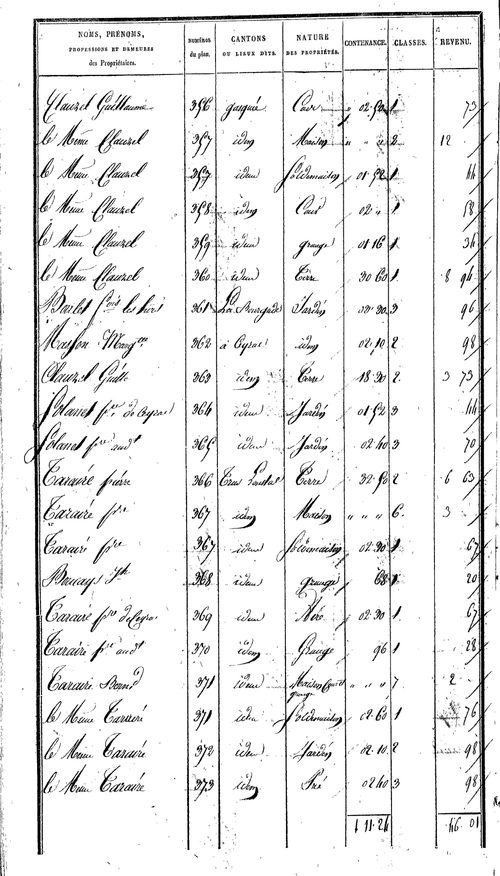 NOMS, PRÉNOMS, PROFESSIONS ET DEMEURES des Propriétaires. NUMÉROS du plan. CANTONS OU LIEUX DITS. NATURE DES PROPRIÉTÉS. CONTENANCE. CLASSES. REVENU.
Clauzel Guillaume 356 Cour 02 50 1 73
le Même Clauzel 357 idem Maison " " " 2 12
le Même Clauzel 357 idem Sol de maison 01 52 1 44
le Même Clauzel 358 idem Cour 02 " 1 58
le Même Clauzel 359 idem grange 01 16 1 34
le Même Clauzel 360 idem Terre 30 60 1 8 94
les hoirs 361 La Bourgade Jardin 30 3 96
362 à Ceyrac idem 02 10 2 98
Clauzel Guille 363 idem Terre 18 30 2 3 73
Solanet pre de Ceyrac 364 idem Jardin 01 52 3 44
Solanet pre 365 idem Jardin 02 40 3 70
Taraire pierre 366 Terre 32 50 2 6 63
Taraire pre 367 idem Maison " " " 6 3
Taraire pre 367 idem Sol de maison 02 30 1 67
368 idem grange 68 1 20
Taraire pre de Ceyrac 369 idem 02 30 1 67
Taraire pre 370 idem Grange 96 1 28
Taraire Bernd 371 idem Maison grange " " " 7 2
le Même Taraire 371 idem Sol de maison 02 60 1 76
le Même Taraire 372 idem Jardin 02 10 2 98
le Même Taraire 373 idem Pré 02 40 3 98
1 11 24 46 01